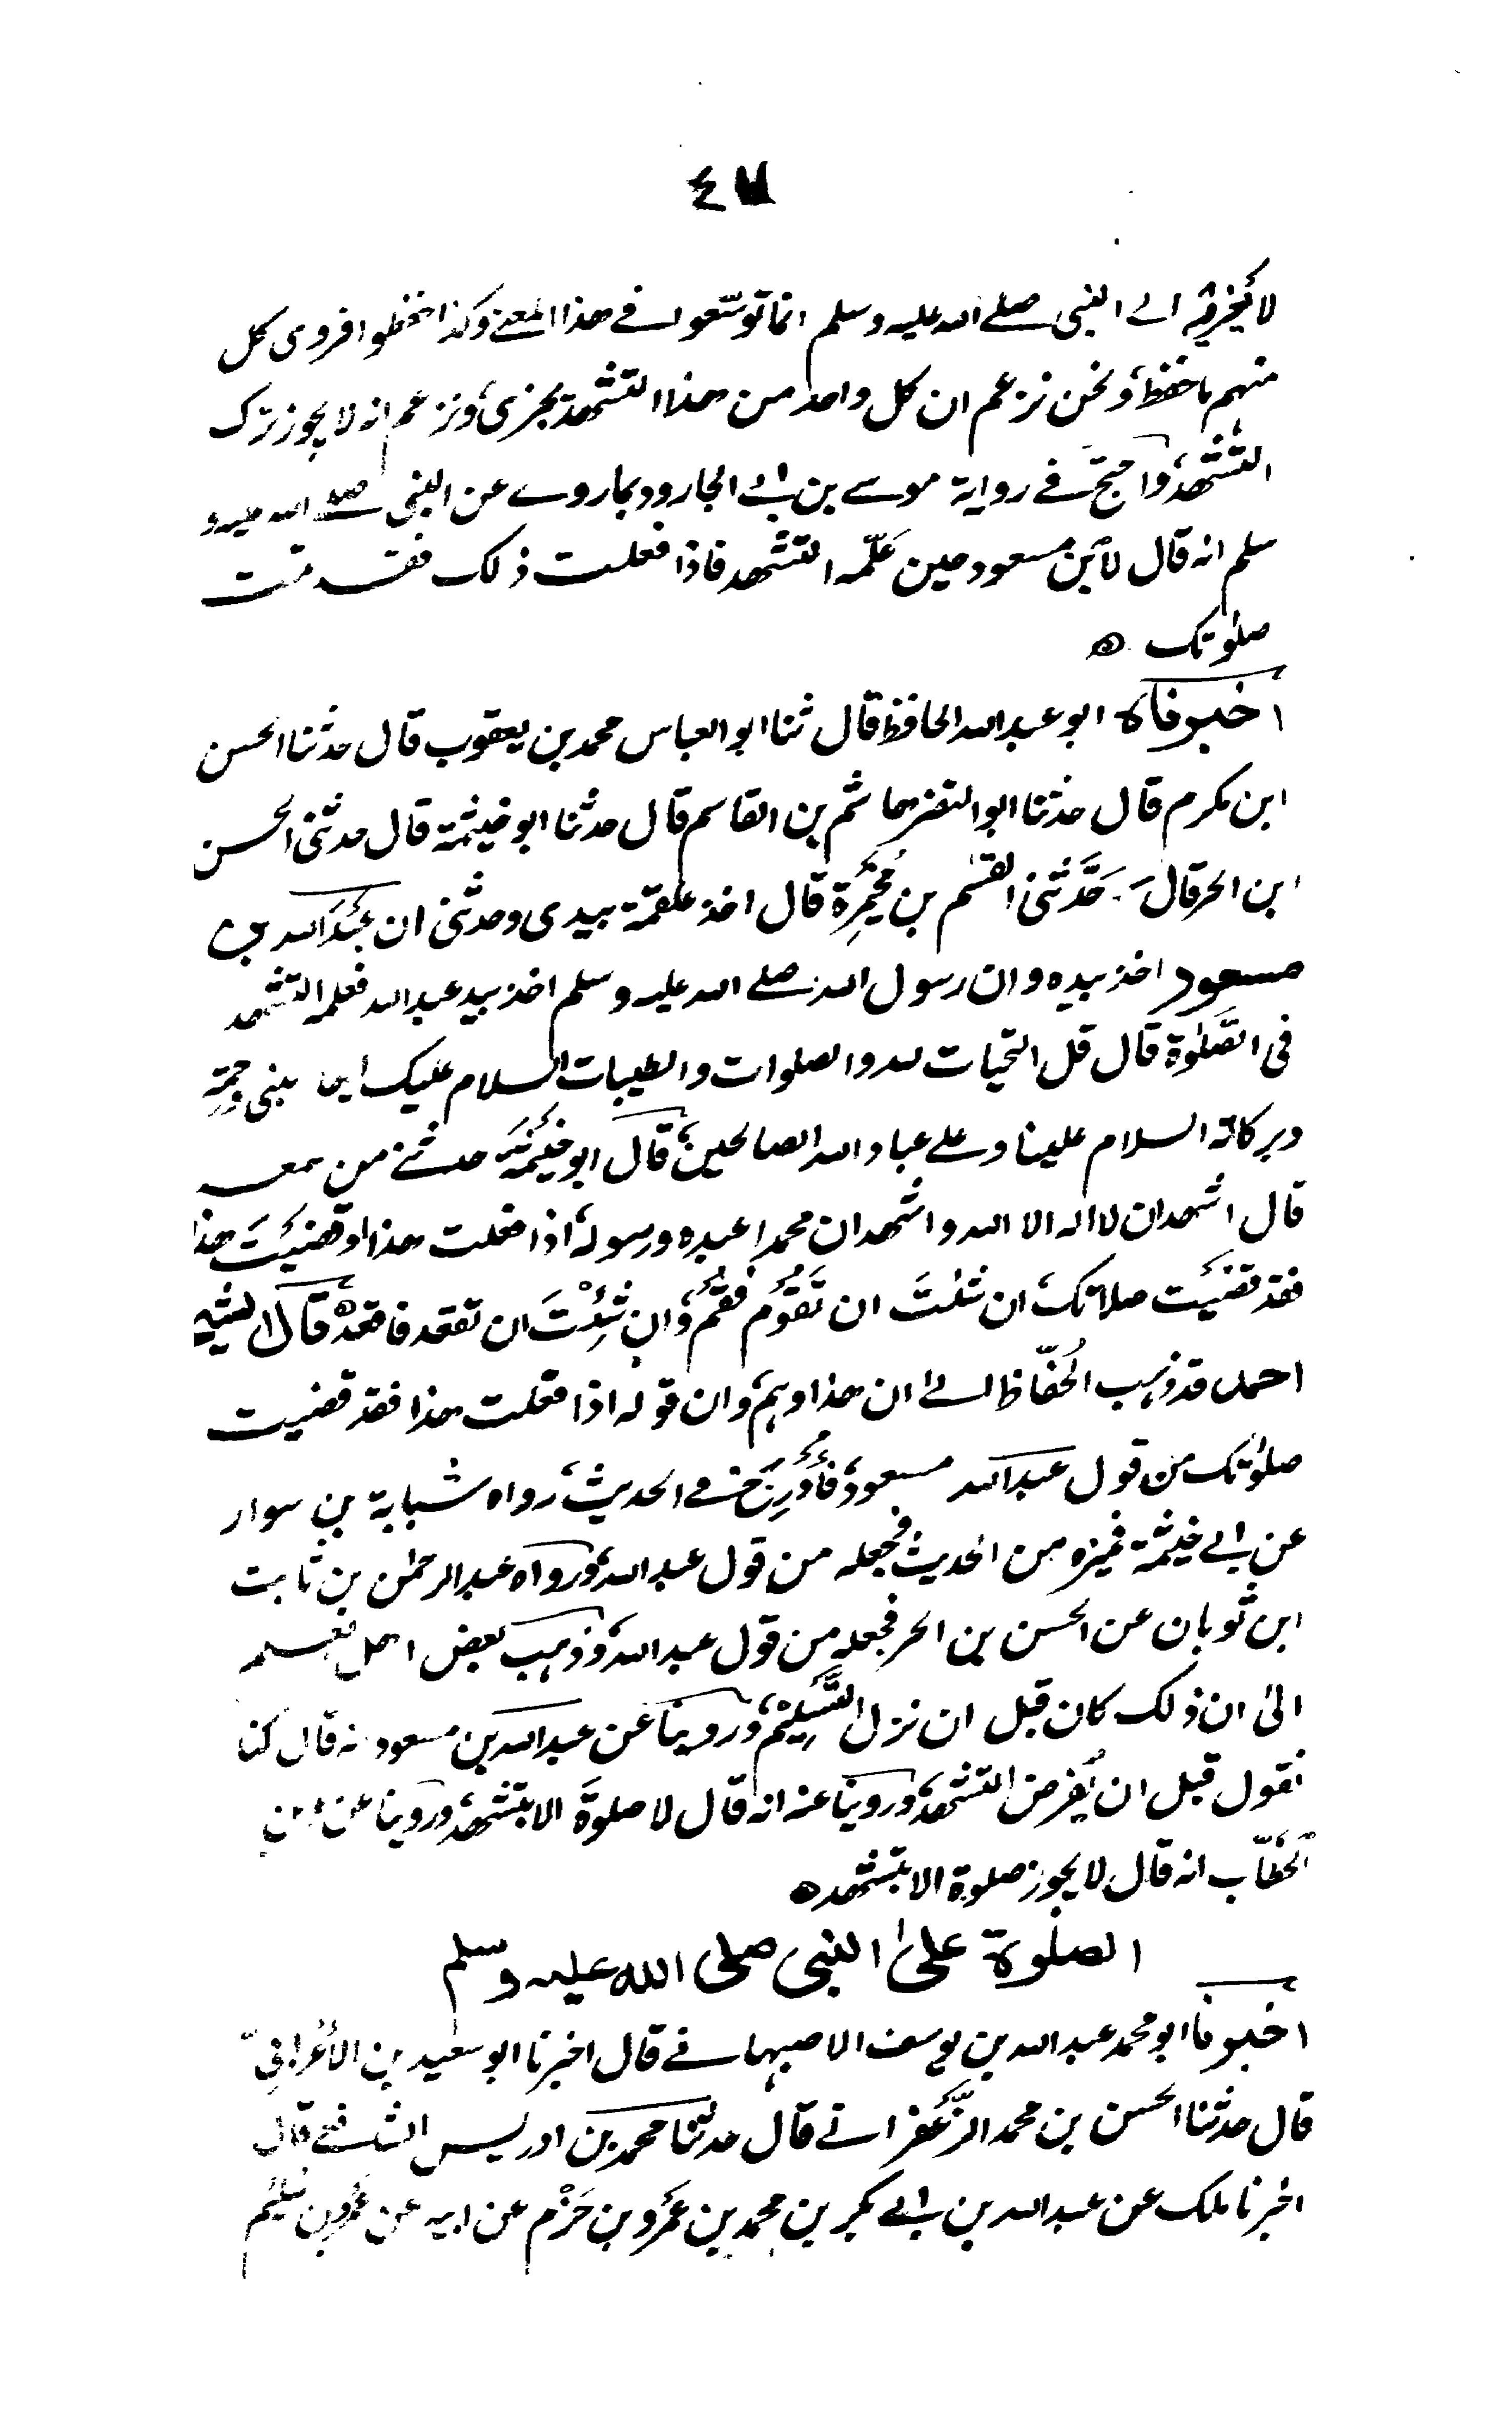 لا يخبر به الى النبى صلى الله عليه وسلم انما توسّعوا فى هذا المعنى وكذا حفظوا فروى كل
منهم ما حفظ، ونحن نزعم ان كل واحد من هذا التشهد يجزى، ونزعم انه لا يجوز ترك
التشهد، واحتج فى رواية موسى بن ابى الجارود بما روى عن النبى صلى الله عليه و
سلم انه قال لابن مسعود حين علّمه التشهد فاذا فعلت ذلك فقد تمت
صلوتك ه
اخبرناه ابو عبدالله الحافظ قال ثنا ابو العباس محمد بن يعقوب قال حدثنا الحسن
ابن مكرم قال حدثنا ابو النضر هاشم بن القاسم قال حدثنا ابو خيثمة قال حدثنى الحسن
ابن الحر قال حَدَّثنى القٰسم بن مُخَيْمِرَة قال اخذ علقمة بيدى وحدثنى ان عَبْدَ الله بن
مسعود اخذ بيده وان رسول الله صلى الله عليه وسلم اخذ بيد عبدالله فعلمه التشهد
فى الصَّلٰوة قال قل التحيات لله والصلوات والطيبات السلام عليك ايها النبى ورحمة
وبركاته السلام علينا وعلى عباد الله الصالحين، قال ابو خَيْثَمَة حدثنى من سمعه
قال اشهد ان لا اله الا الله واشهد ان محمدا عبده ورسوله، اذا فعلت هذا او قضَيْتَ هذا
فقد قضَيْت صلاتك، ان شئتَ ان تَقُوْم فقُمْ، وان شِئْتَ ان تقعد فاقعد ه قال الشيخ
احمد قد ذهب الحُفّاظ الى ان هذا وهم، وان قوله اذا فعلت هذا فقد قضيت
صلوٰتك من قول عبدالله مسعود، فأُدْرِجَ فى الحديث، رواه شبابة بن سوار
عن ابى خيثمة فميزه من الحديث فجعله من قول عبدالله، ورواه عبد الرحمٰن بن ثابت
ابن ثوبان عن الحسن بن الحر فجعله من قول عبدالله، وذهب بعض اهل العلم
الىٰ ان ذلك كان قبل ان نزل التَّسْلِيْم، وروينا عن عبدالله بن مسعود انه قال كنا
نقول قبل ان يُفرض التشهد، وروينا عنه انه قال لا صلوةَ الا بتشهد، وروينا عن عمر بن
الخطّاب انه قال لا يجوز صلوة الا بتشهد ه
الصلٰوة علىٰ النبى صلى الله عليه وسلم
اخبرنا ابو محمد عبدالله بن يوسف الاصبهانى قال اخبرنا ابو سعيد بن الأعْرابىّ
قال حدثنا الحسن بن محمد الزَّعْفرانى قال حدثنا محمد بن ادريس الشافعى قال
اخبرنا مٰلك عن عبدالله بن ابى بكر بن محمد بن عَمْرو بن حَزْم عن ابيه عن عَمْرو بن سُلَيْم